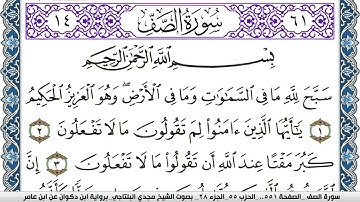 ٦١ سُورَةُ الصَّفِّ ١٤
بِسْمِ اللَّهِ الرَّحْمَٰنِ الرَّحِيمِ
سَبَّحَ لِلَّهِ مَا فِي السَّمَٰوَٰتِ وَمَا فِي الْأَرْضِ ۖ وَهُوَ الْعَزِيزُ الْحَكِيمُ
١ يَٰٓأَيُّهَا الَّذِينَ ءَامَنُوا لِمَ تَقُولُونَ مَا لَا تَفْعَلُونَ ٢
كَبُرَ مَقْتًا عِندَ اللَّهِ أَن تَقُولُوا مَا لَا تَفْعَلُونَ ٣ إِنَّ
سورة الصف_الصفحة ٥٥١_ الحزب ٥٥ الجزء ٢٨_ بصوت الشيخ مجدي البلتاجي_برواية ابن ذكوان عن ابن عامر